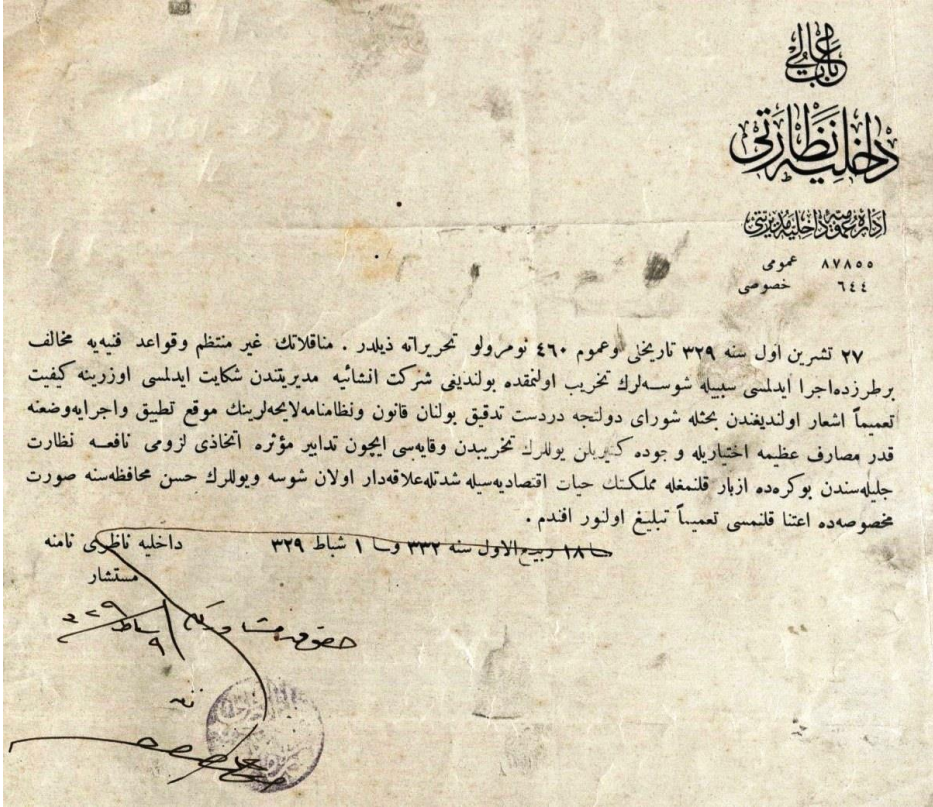 باب عالی
داخلیه نظارتی
اداره عمومیه داخلیه مدیریتی
عمومی ٨٧٨٥٥
خصوصی ٦٤٤
٢٧ تشرین اول سنه ٣٢٩ تاریخلی وعموم ٤٦٠ نومرولو تحریراته ذیلدر . مناقلاتك غیر منتظم وقواعد فنیه‌یه مخالف
برطرزده اجرا ایدلمسی سببیله شوسه‌لرك تخریب اولنمقده بولندیغی شرکت انشائیه مدیریتندن شکایت ایدلمسی اوزرینه کیفیت
تعمیماً اشعار اولندیغندن بحثله شورای دولتجه دردست تدقیق بولنان قانون ونظامنامه لایحه‌لرینك موقع تطبیق واجرایه وضعنه
قدر مصارف عظیمه اختیاریله وجوده کتیریلن یوللرك تخریبدن وقایه‌سی ایچون تدابیر مؤثره اتخاذی لزومی نافعه نظارت
جلیله‌سندن بوکره‌ده ازبار قلنمغله مملکتك حیات اقتصادیه‌سیله شدتله علاقه‌دار اولان شوسه ویوللرك حسن محافظه‌سنه صورت
مخصوصه‌ده اعتنا قلنمسی تعمیماً تبلیغ اولنور افندم .
١٨ ربیع الاول سنه ٣٣٢ و ١ شباط ٣٢٩
داخلیه ناظری نامنه
مستشار
حقوق
٩ شباط ٣٢٩